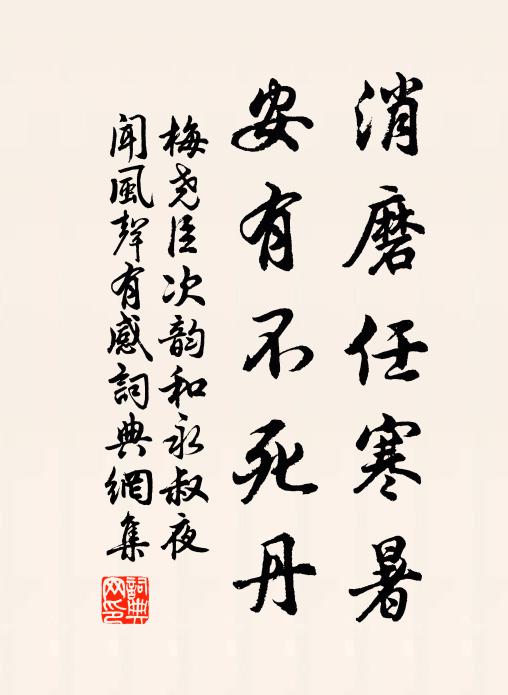 消磨任寒暑
安有不死丹
梅尧臣次韵和永叔夜
闻風聲有感詞典網集
詞典
网印